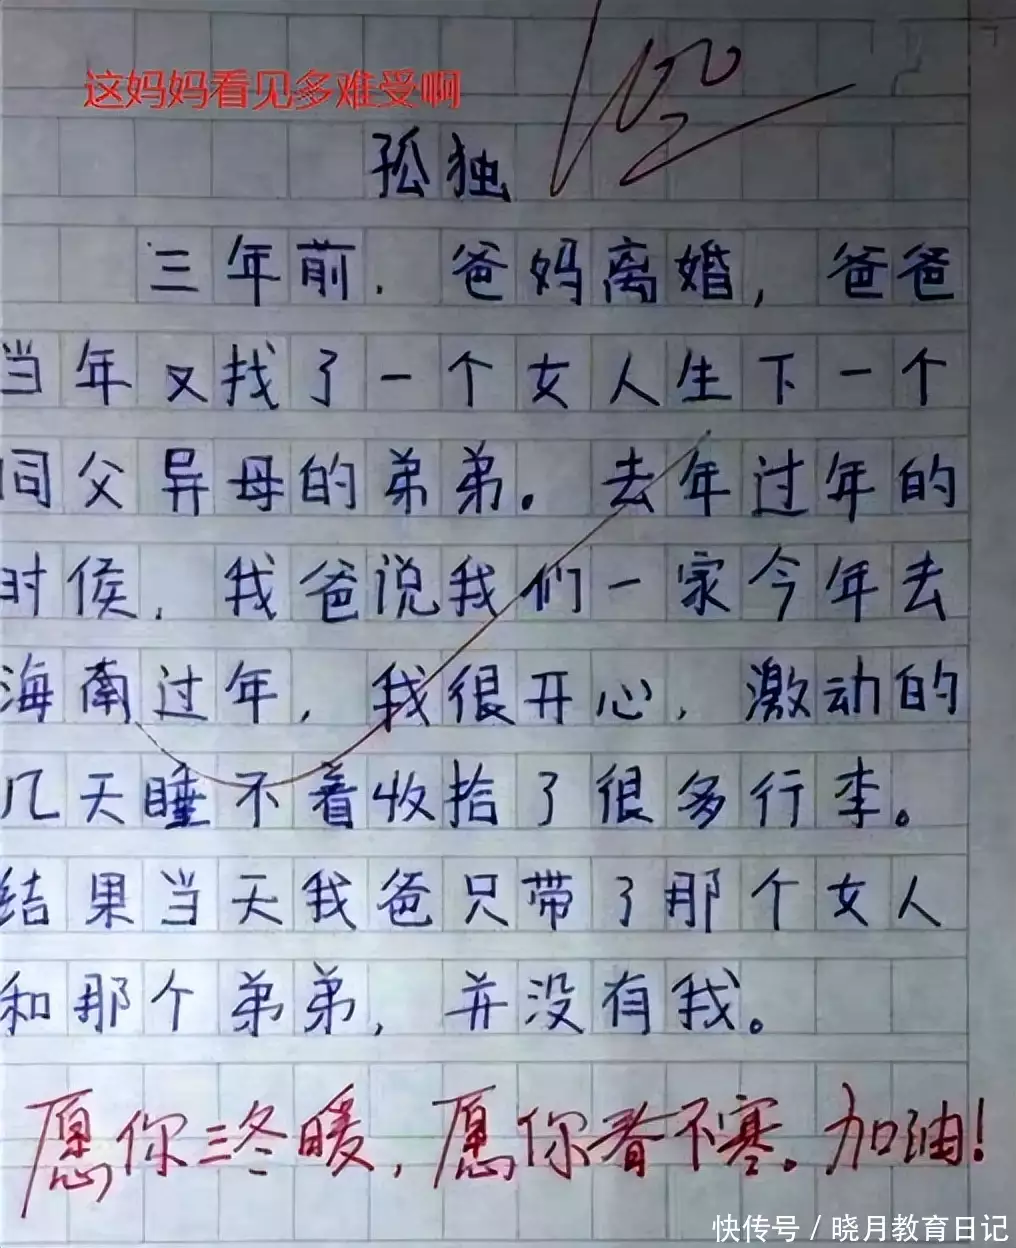 100
这妈妈看见多难受啊
孤独
三年前.爸妈离婚,爸爸
当年又找了一个女人生下一个
同父异母的弟弟。去年过年的
时侯,我爸说我们一家今年去
海南过年,我很开心,激动的
几天睡不着收拾了很多行李。
结果当天我爸只带了那个女人
和那个弟弟,并没有我。
愿你三冬暖,愿你春不寒。加油!
快传号/晓月教育日记